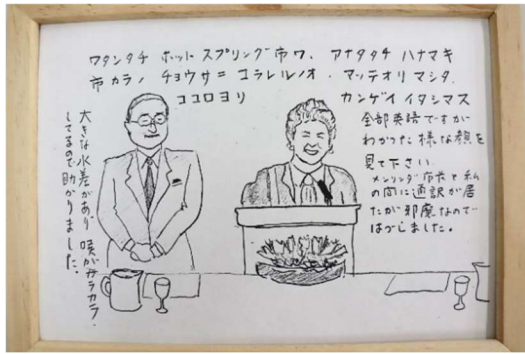 ワタシタチ ホット スプリング市ワ、アナタタチ ハナマキ
市カラノ チョウサニ コラレルノオ、マッテオリマシタ、
ココロヨリ カンゲイイタシマス
全部英語ですが
わかった様な顔を
見て下さい。
メンリンダ市長と私
の間に通訳が居
たが邪魔なので
はづしました。
大きな水差があり、咳がガラガラ、
してるので助かりました。